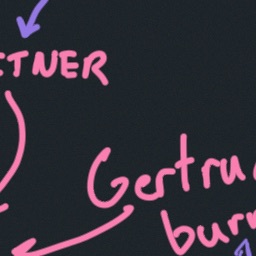 TNER
Gertru
burn